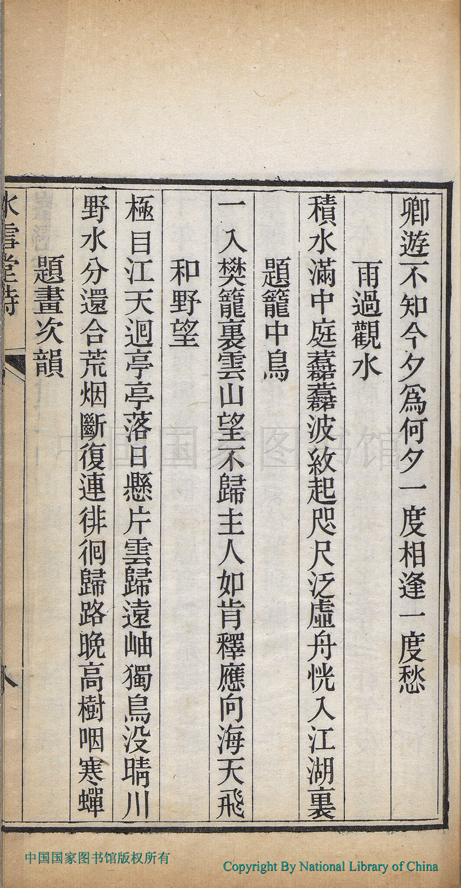 卿遊不知今夕為何夕一度相逢一度愁
雨過觀水
積水滿中庭䕃䕃波紋起咫尺泛虛舟恍入江湖裏
題籠中鳥
一入樊籠裏雲山望不歸主人如肯釋應向海天飛
和野望
極目江天迥亭亭落日懸片雲歸遠岫獨鳥没晴川
野水分還合荒烟斷復連徘徊歸路晚高樹咽寒蟬
題畫次韻
冰雪堂詩
八
中国国家图书馆
中国国家图书馆版权所有
Copyright By National Library of China